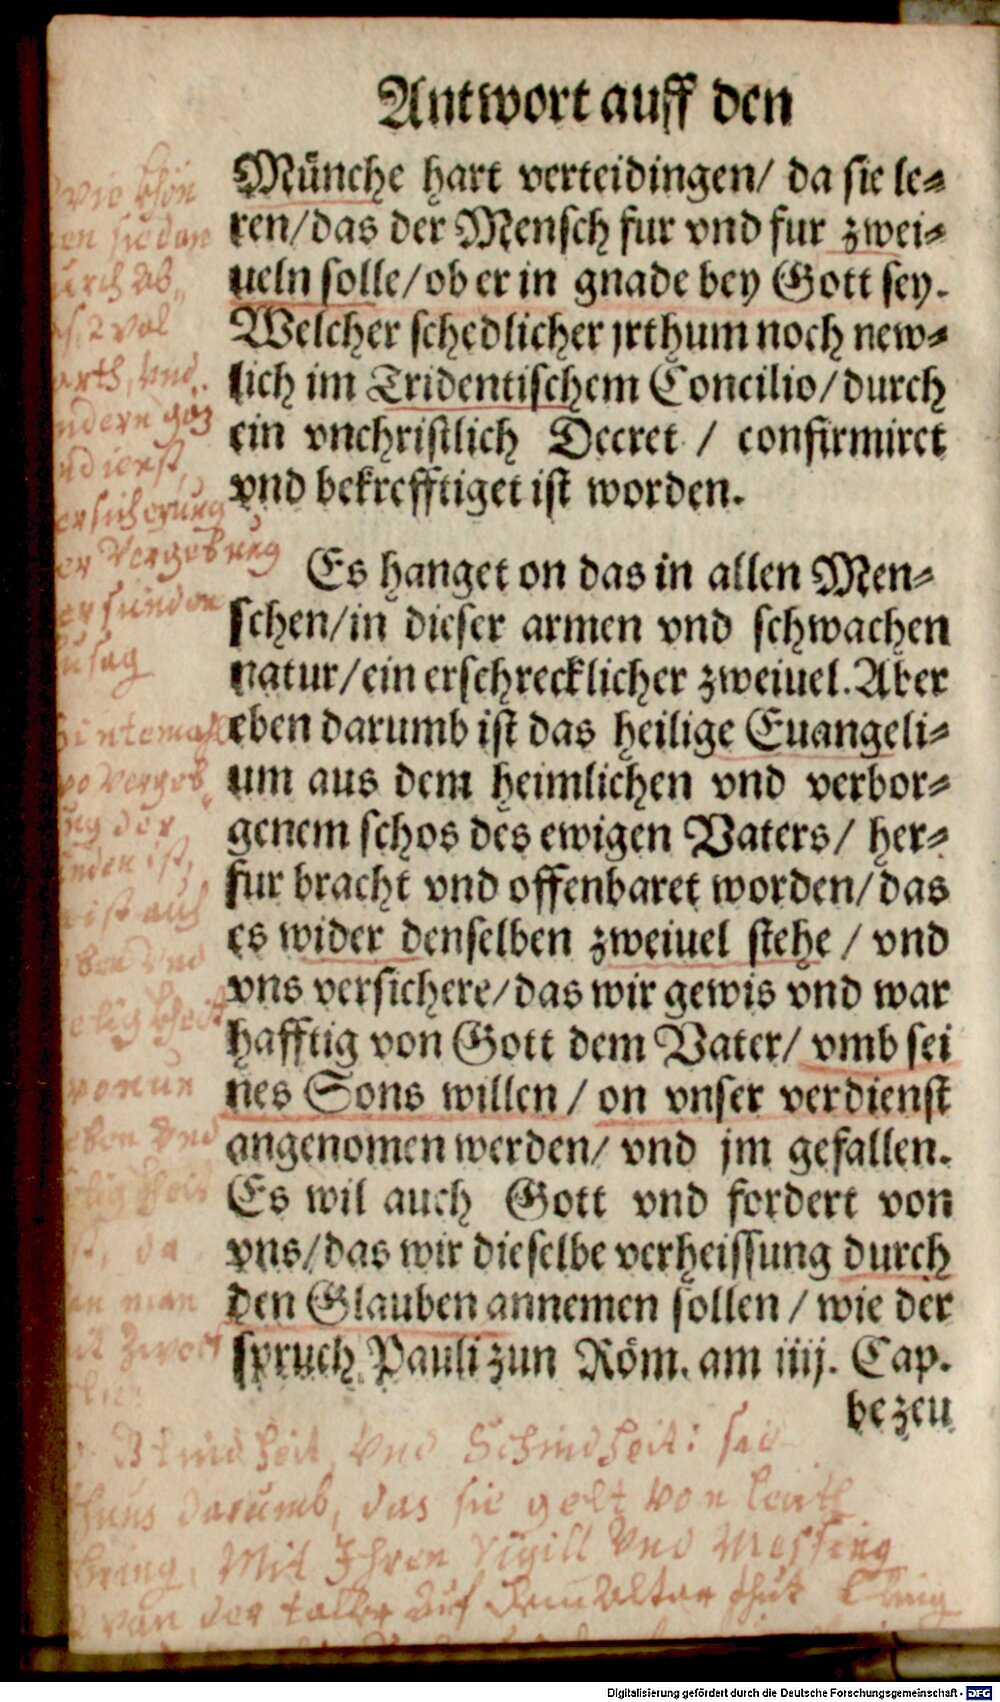 Antwort auff den
Münche hart verteidingen/ da sie le⸗
ren/das der Mensch fur vnd fur zwei⸗
ueln solle/ob er in gnade bey Gott sey.
Welcher schedlicher jrthum noch new⸗
lich im Tridentischem Concilio/durch
ein vnchristlich Decret / confirmiret
vnd bekrefftiget ist worden.
Es hanget on das in allen Men⸗
schen/in dieser armen vnd schwachen
natur/ein erschrecklicher zweiuel. Aber
eben darumb ist das heilige Euangeli⸗
um aus dem heimlichen vnd verbor⸗
genem schos des ewigen Vaters/ her⸗
fur bracht vnd offenbaret worden/das
es wider denselben zweiuel stehe / vnd
vns versichere/das wir gewis vnd war
hafftig von Gott dem Vater/ vmb sei
nes Sons willen / on vnser verdienst
angenomen werden/ vnd jm gefallen.
Es wil auch Gott vnd fordert von
vns/das wir dieselbe verheissung durch
den Glauben annemen sollen / wie der
spruch Pauli zun Röm. am iiij. Cap.
bezeu
durch ab
vnd
ersicherung
er Vergebung
er sünden
zusag
Sintemahl
Vergeb
ng der
ünden ist,
ist auch
vnd
man
Blindheit, vnd Schindheit: sie
darumb, das sie gelt von leuth
bring, Mit Ihren Sigill vnd Messing
von der auf dem Altar thut
Digitalisierung gefördert durch die Deutsche Forschungsgemeinschaft - DFG